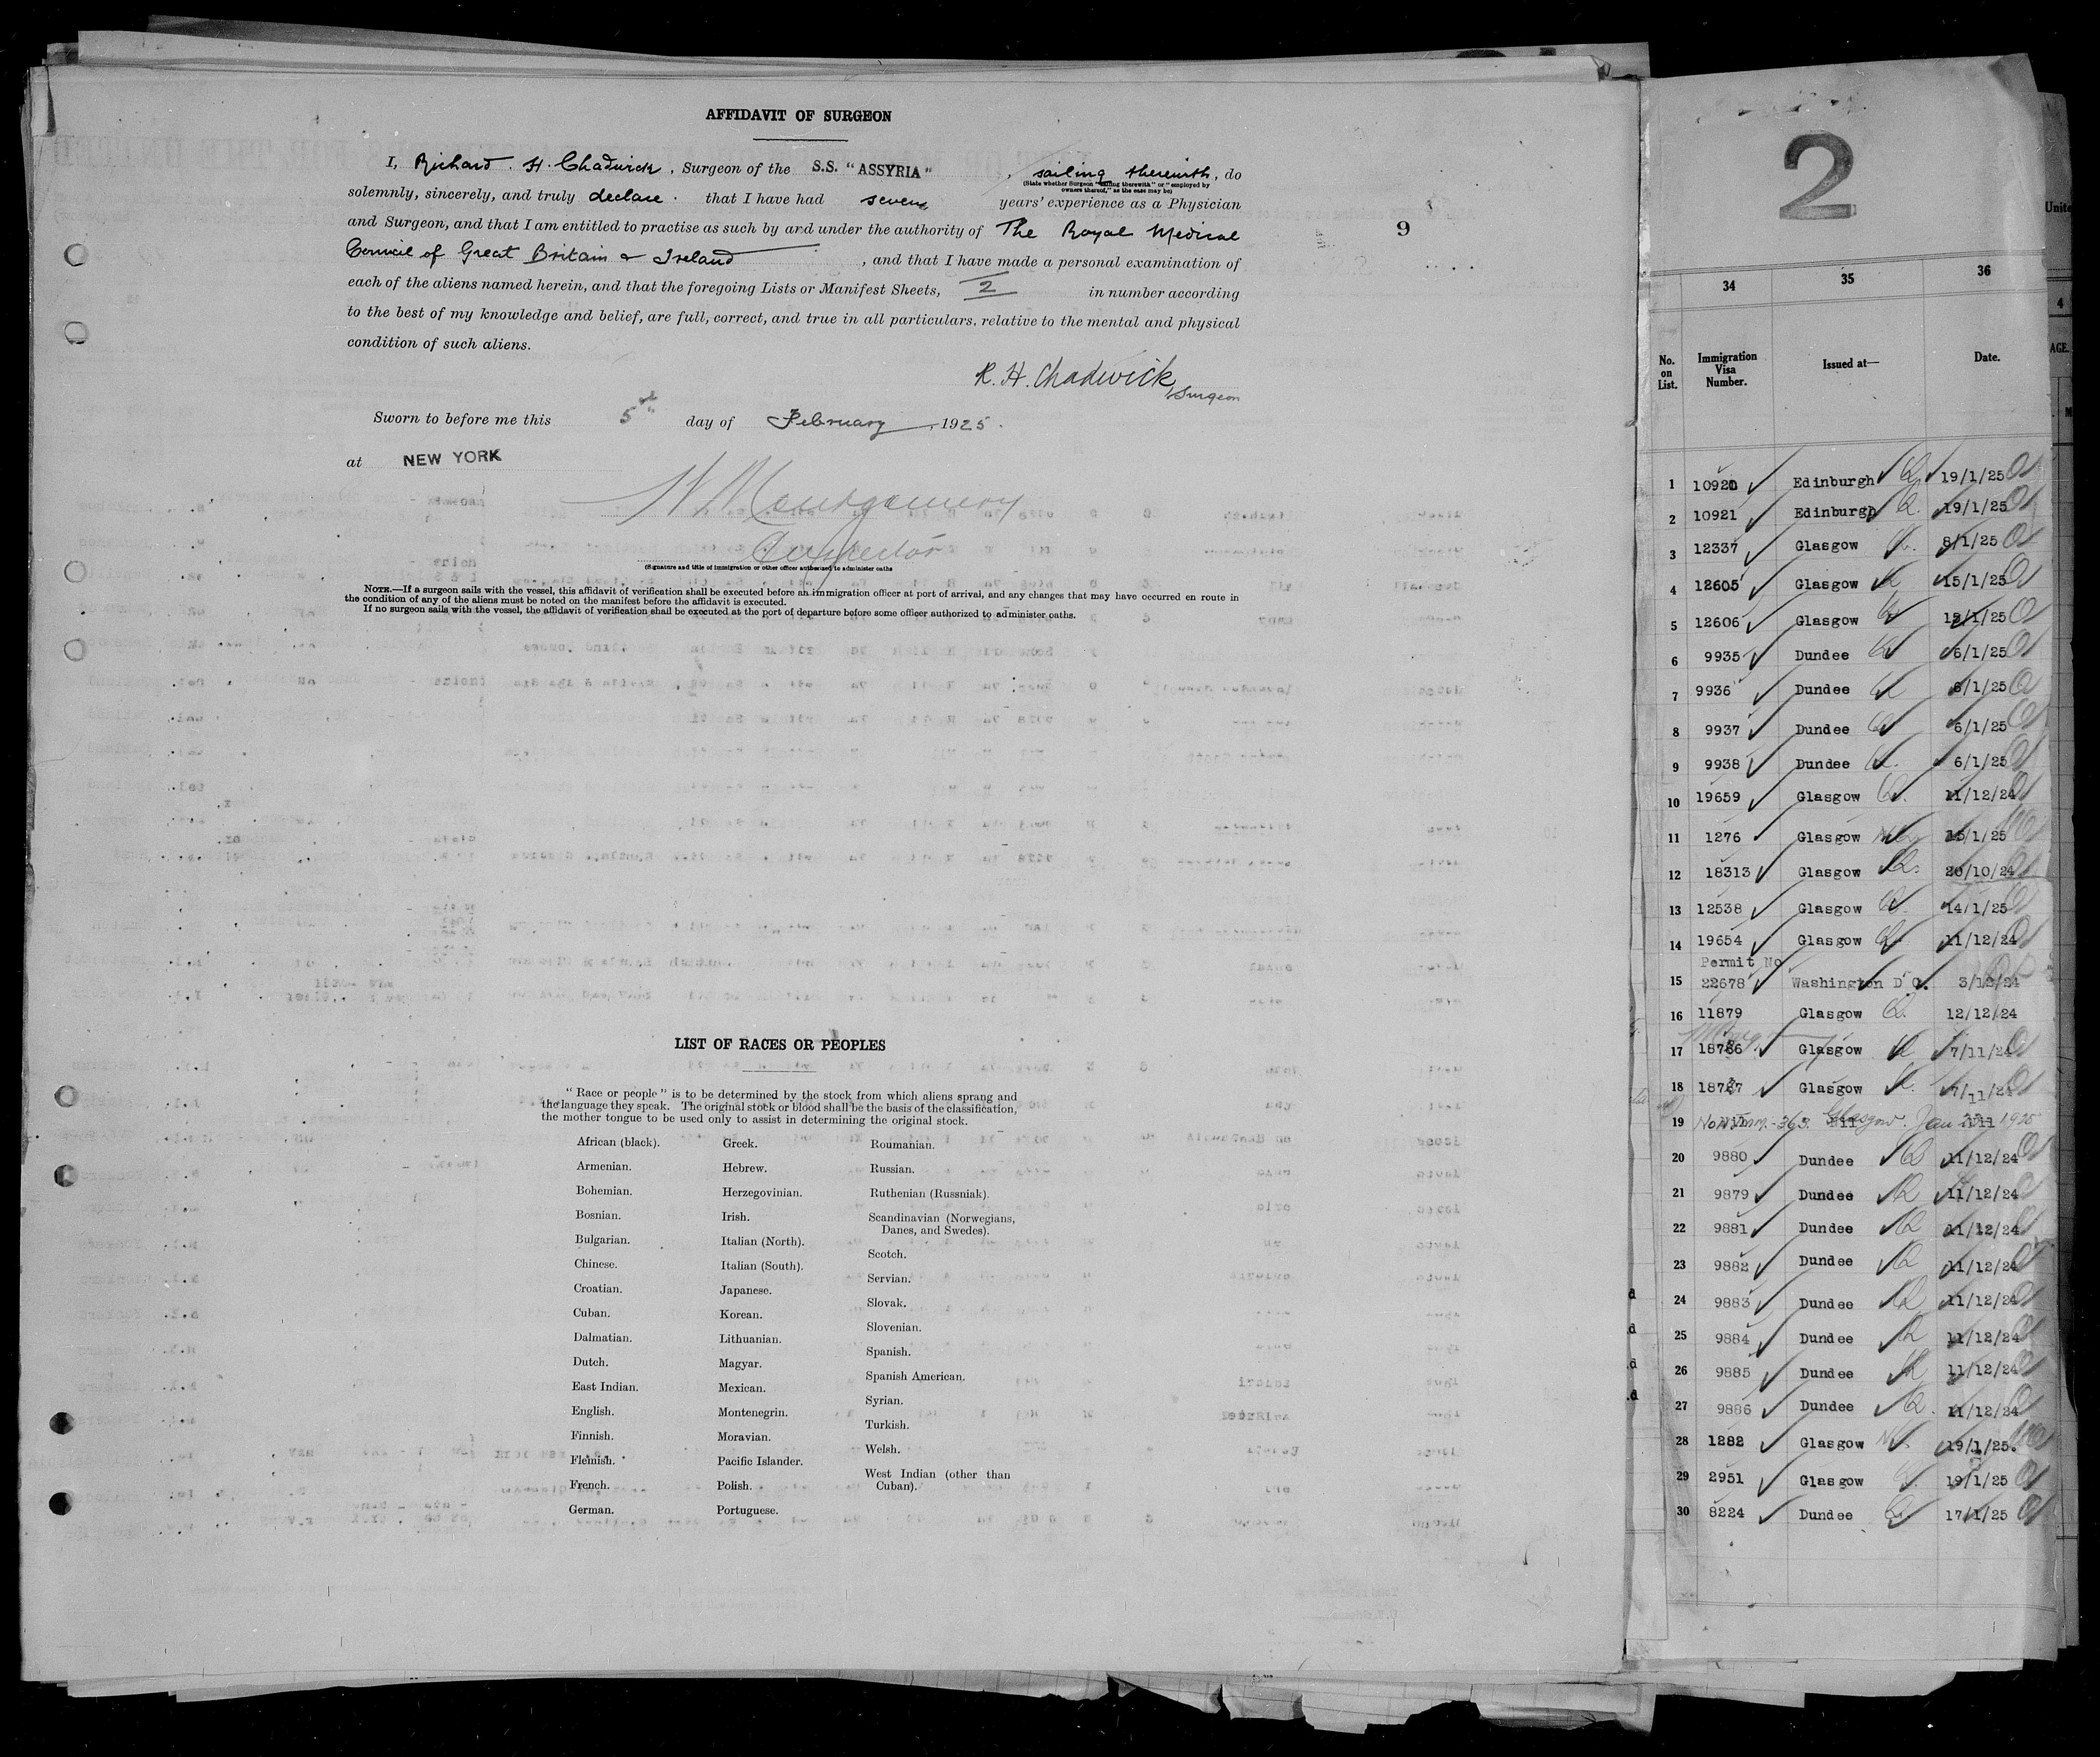 AFFIDAVIT OF SURGEON
I, Richard. H. Chadwick, Surgeon of the S.S. "ASSYRIA", sailing therewith, do
(State whether Surgeon "sailing therewith" or "employed by
owners thereof," as the case may be)
solemnly, sincerely, and truly declare. that I have had seven years' experience as a Physician
and Surgeon, and that I am entitled to practise as such by and under the authority of The Royal Medical
Council of Great Britain & Ireland, and that I have made a personal examination of
each of the aliens named herein, and that the foregoing Lists or Manifest Sheets, 2 in number according
to the best of my knowledge and belief, are full, correct, and true in all particulars, relative to the mental and physical
condition of such aliens.
R. H. Chadwick
Surgeon
Sworn to before me this 5th day of February, 1925.
at NEW YORK
Montgomery
Inspector
(Signature and title of immigration or other officer authorized to administer oaths
NOTE.—If a surgeon sails with the vessel, this affidavit of verification shall be executed before an immigration officer at port of arrival, and any changes that may have occurred en route in
the condition of any of the aliens must be noted on the manifest before the affidavit is executed.
If no surgeon sails with the vessel, the affidavit of verification shall be executed at the port of departure before some officer authorized to administer oaths.
9
LIST OF RACES OR PEOPLES
"Race or people" is to be determined by the stock from which aliens sprang and
the language they speak. The original stock or blood shall be the basis of the classification,
the mother tongue to be used only to assist in determining the original stock.
African (black).
Armenian.
Bohemian.
Bosnian.
Bulgarian.
Chinese.
Croatian.
Cuban.
Dalmatian.
Dutch.
East Indian.
English.
Finnish.
Flemish.
French.
German.
Greek.
Hebrew.
Herzegovinian.
Irish.
Italian (North).
Italian (South).
Japanese.
Korean.
Lithuanian.
Magyar.
Mexican.
Montenegrin.
Moravian.
Pacific Islander.
Polish.
Portuguese.
Roumanian.
Russian.
Ruthenian (Russniak).
Scandinavian (Norwegians,
Danes, and Swedes).
Scotch.
Servian.
Slovak.
Slovenian.
Spanish.
Spanish American.
Syrian.
Turkish.
Welsh.
West Indian (other than
Cuban).
2
34 35 36
No. on List. Immigration Visa Number. Issued at— Date.
1 10920 Edinburgh 19/1/25
2 10921 Edinburgh 19/1/25
3 12337 Glasgow 8/1/25
4 12605 Glasgow 15/1/25
5 12606 Glasgow 1/25
6 9935 Dundee 6/1/25
7 9936 Dundee 6/1/25
8 9937 Dundee 6/1/25
9 9938 Dundee 6/1/25
10 19659 Glasgow 11/12/24
11 1276 Glasgow 15/1/25
12 18313 Glasgow 20/10/24
13 12538 Glasgow 14/1/25
14 19654 Glasgow 11/12/24
Permit No
15 22678 Washington D C. 3/12/24
16 11879 Glasgow 12/12/24
17 18786 Glasgow 7/11/24
18 18787 Glasgow 7/11/24
19 363. Glasgow. Jan 1925
20 9880 Dundee 11/12/24
21 9879 Dundee 11/12/24
22 9881 Dundee 11/12/24
23 9882 Dundee 11/12/24
24 9883 Dundee 11/12/24
25 9884 Dundee 11/12/24
26 9885 Dundee 11/12/24
27 9886 Dundee 11/12/24
28 1282 Glasgow 19/1/25.
29 2951 Glasgow 19/1/25
30 8224 Dundee 17/1/25
Unite
4
AGE.